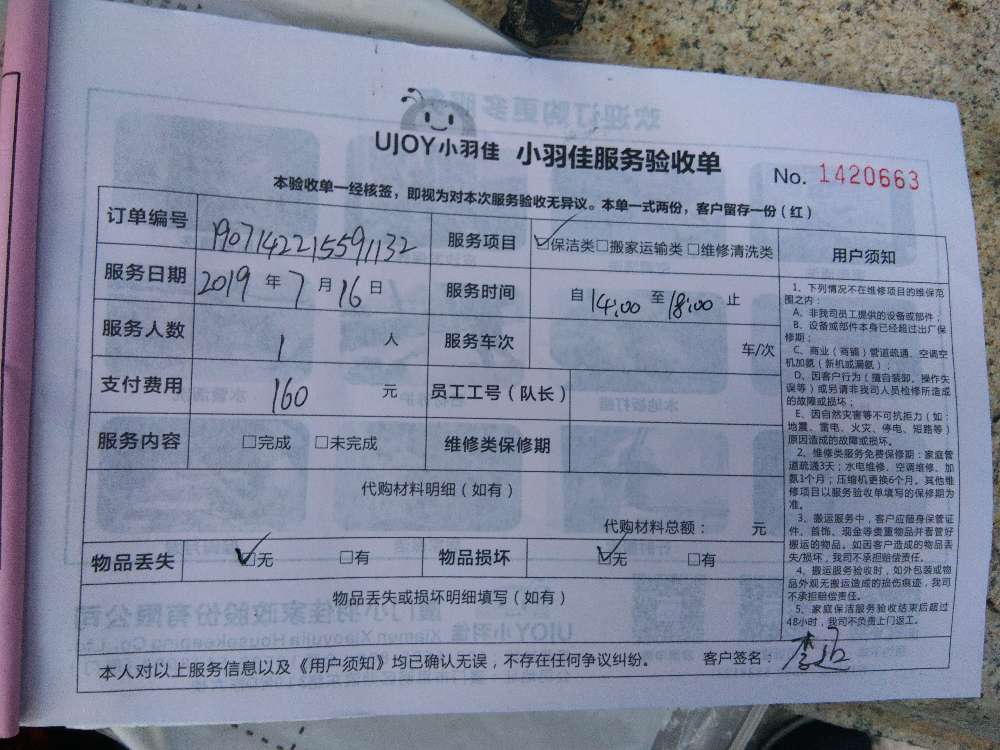 UJOY小羽佳 小羽佳服务验收单 No. 1420663
本验收单一经核签，即视为对本次服务验收无异议。本单一式两份，客户留存一份（红）
订单编号 190714221559 1132 服务项目 ☑保洁类 □搬家运输类 □维修清洗类
服务日期 2019 年 7 月 16 日 服务时间 自 14:00 至 18:00 止
服务人数 1 人 服务车次 车/次
支付费用 160 元 员工工号（队长）
服务内容 □完成 □未完成 维修类保修期
代购材料明细（如有）
代购材料总额： 元
物品丢失 ☑无 □有 物品损坏 ☑无 □有
物品丢失或损坏明细填写（如有）
本人对以上服务信息以及《用户须知》均已确认无误，不存在任何争议纠纷。 客户签名：
用户须知
1、下列情况不在维修项目的维保范
围之内：
A、非我司员工提供的设备或部件；
B、设备或部件本身已经超过出厂保
修期；
C、商业（商铺）管道疏通、空调空
机加氨（新机或漏氨）；
D、因客户行为（擅自装卸、操作失
误等）或另请非我司人员检修所造成
的故障或损坏；
E、因自然灾害等不可抗拒力（如：
地震、雷电、火灾、停电、短路等）
原因造成的故障或损坏。
2、维修类服务免费保修期：家庭管
道疏通3天；水电维修、空调维修、加
氨1个月；压缩机更换6个月。其他维
修项目以服务验收单填写的保修期为
准。
3、搬运服务中，客户应随身保管证
件、首饰、现金等贵重物品并看管好
搬运的物品。如因客户造成的物品丢
失/损坏，我司不承担赔偿责任。
4、搬运服务验收时，如外包装或物
品外观无搬运造成的损伤痕迹，我司
不承担赔偿责任。
5、家庭保洁服务验收结束后超过
48小时，我司不负责上门返工。